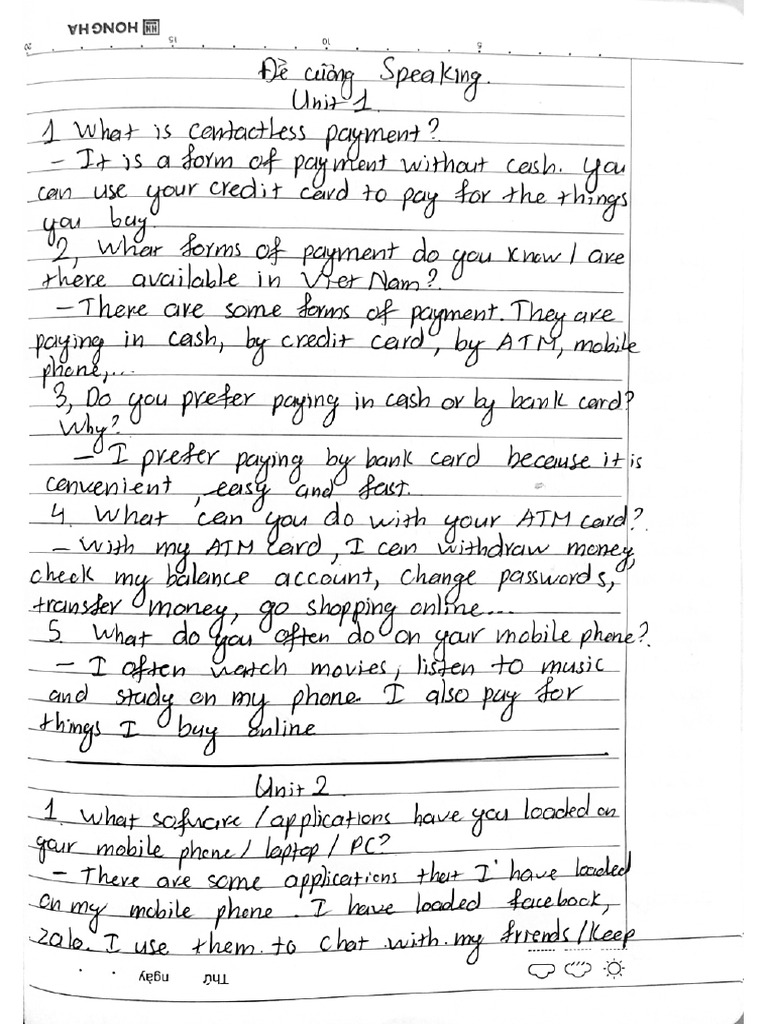 HONG HA HH
20 15 10 5
Đề cương Speaking.
Unit 1
1 What is contactless payment?
- It is a form of payment without cash. You
can use your credit card to pay for the things
you buy.
2, What forms of payment do you know / are
there available in Viet Nam?
- There are some forms of payment. They are
paying in cash, by credit card, by ATM, mobile
phone,...
3, Do you prefer paying in cash or by bank card?
Why?
- I prefer paying by bank card because it is
convenient, easy and fast.
4. What can you do with your ATM card?
- With my ATM card, I can withdraw money,
check my balance account, change passwords,
transfer money, go shopping online...
5. What do you often do on your mobile phone?
- I often watch movies, listen to music
and study on my phone. I also pay for
things I buy online
Unit 2
1. What sofware / applications have you loaded on
your mobile phone / laptop / PC?
- There are some applications that I have loaded
on my mobile phone. I have loaded facebook,
zalo. I use them to chat with my friends / Keep
Thứ ngày